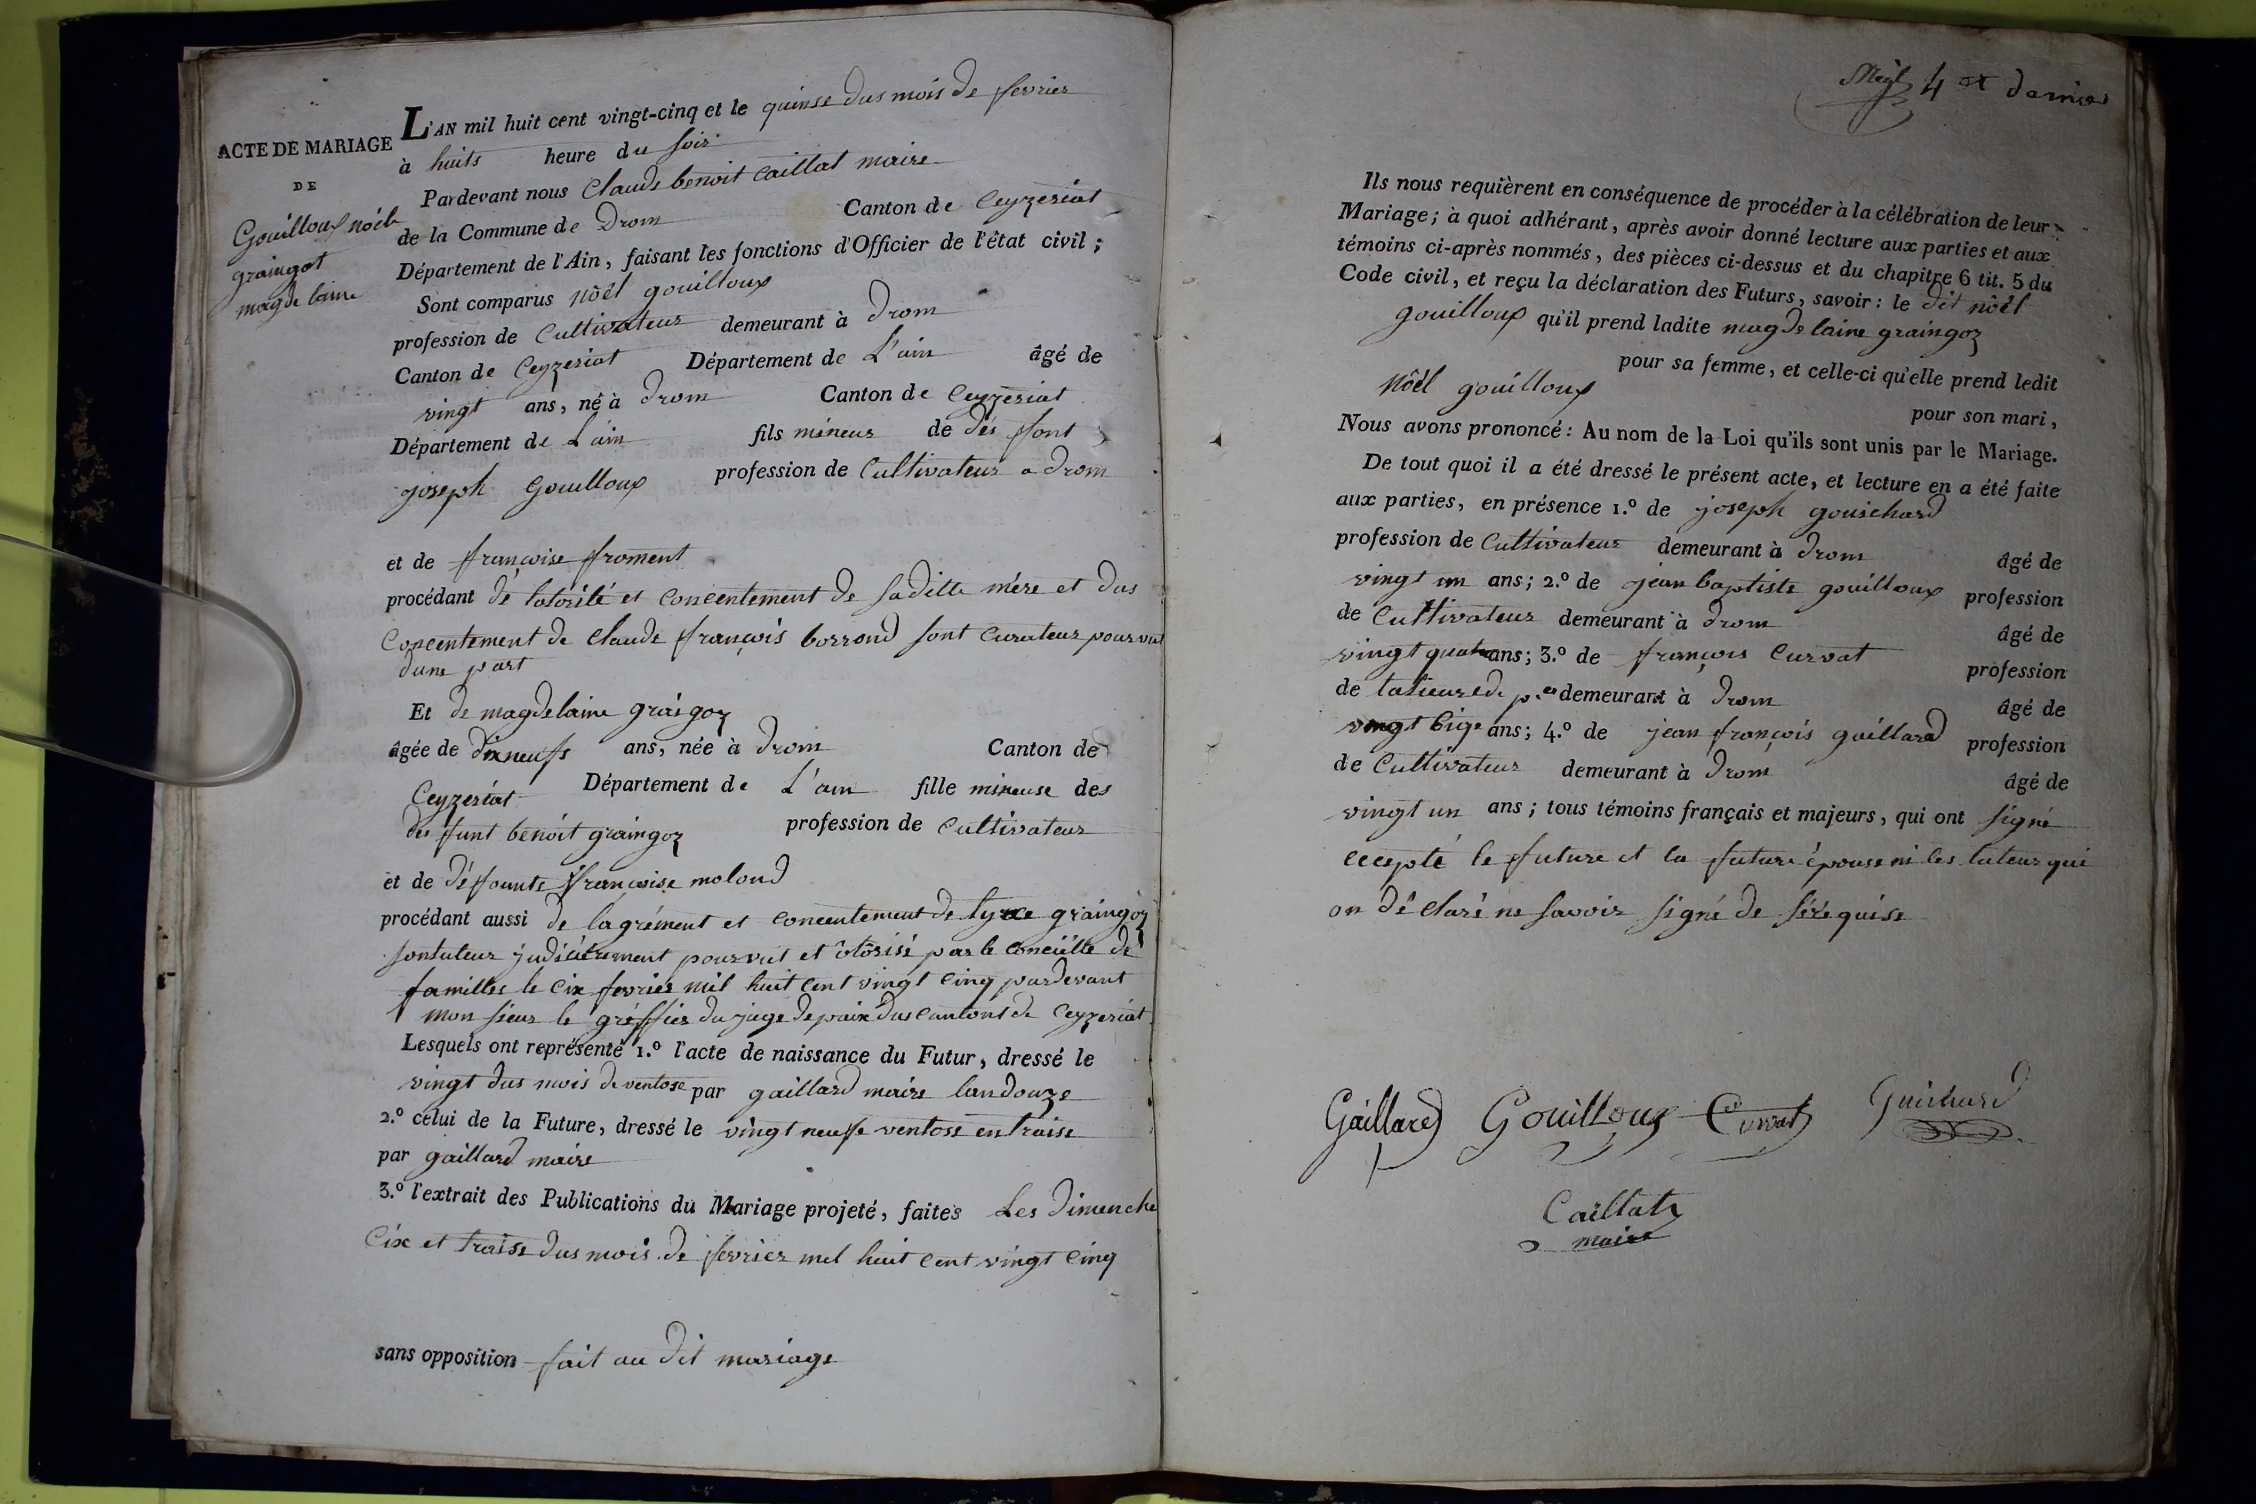 ACTE DE MARIAGE
DE
Gouilloux nöéle
graingot
magde laine
L'AN mil huit cent vingt-cinq et le quinse dus mois de fevrier
à huits heure du soir
Pardevant nous Claude benoit Caillat maire
de la Commune de Drom Canton de Ceyzeriat
Département de l'Ain, faisant les fonctions d'Officier de l'état civil ;
Sont comparus nöêl gouilloux
profession de Cultivateur demeurant à Drom
Canton de Ceyzeriat Département de L'ain âgé de
vingt ans, né à Drom Canton de Ceyzeriat
Département de L'ain fils mineur de dés font
joseph Gouilloux profession de Cultivateur a Drom
et de françoise froment
procédant dé lotorité et concentement de saditte mére et dus
Concentement de Claude françois borrond sont Curateur pourvut
dune part
Et de magdelaine graigoz
âgée de dixneufs ans, née à Drom Canton de
Ceyzeriat Département de L'ain fille mineuse des
dés funt benoit graingoz profession de Cultivateur
et de déffounte françoise molond
procédant aussi de lagrément et concentement de graingoz
sontuteur judiciérement pourvut et ôtôrisé par le conciélle de
familles le Cix fevrier mil huit Cent vingt Cinq pardevant
mon sieur le gréffier du juge depaix dus cantont de Ceyzeriat
Lesquels ont représenté 1.º l'acte de naissance du Futur, dressé le
vingt dus mois de ventose par gaillard maire landouze
2.º celui de la Future, dressé le vingt neuffe ventose entraise
par gaillard maire
3.º l'extrait des Publications du Mariage projeté, faites Les Dimenche
Cix et traise dus mois de fevrier mil huit Cent vingt Cinq
sans opposition fait au dit mariage
4 et dernier
Ils nous requièrent en conséquence de procéder à la célébration de leur
Mariage ; à quoi adhérant, après avoir donné lecture aux parties et aux
témoins ci-après nommés, des pièces ci-dessus et du chapitre 6 tit. 5 du
Code civil, et reçu la déclaration des Futurs, savoir : le dit nöêl
gouilloux qu'il prend ladite magde laine graingoz
pour sa femme, et celle-ci qu'elle prend ledit
Nöêl gouilloux pour son mari,
Nous avons prononcé : Au nom de la Loi qu'ils sont unis par le Mariage.
De tout quoi il a été dressé le présent acte, et lecture en a été faite
aux parties, en présence 1.º de joseph gouichard
profession de Cultivateur demeurant à Drom âgé de
vingt un ans ; 2.º de jean baptiste gouilloux profession
de Cultivateur demeurant à Drom âgé de
vingt quatre ans ; 3.º de françois Curvat profession
de demeurant à Drom âgé de
vingt ans ; 4.º de jean françois gaillard profession
de Cultivateur demeurant à Drom âgé de
vingt un ans ; tous témoins français et majeurs, qui ont signé
ecepté le future et la future épouse ni les tuteur qui
on déclaré ne savoir signé de sé réquise
Gaillard Gouilloux Curvat Guichard
Caillat
maire